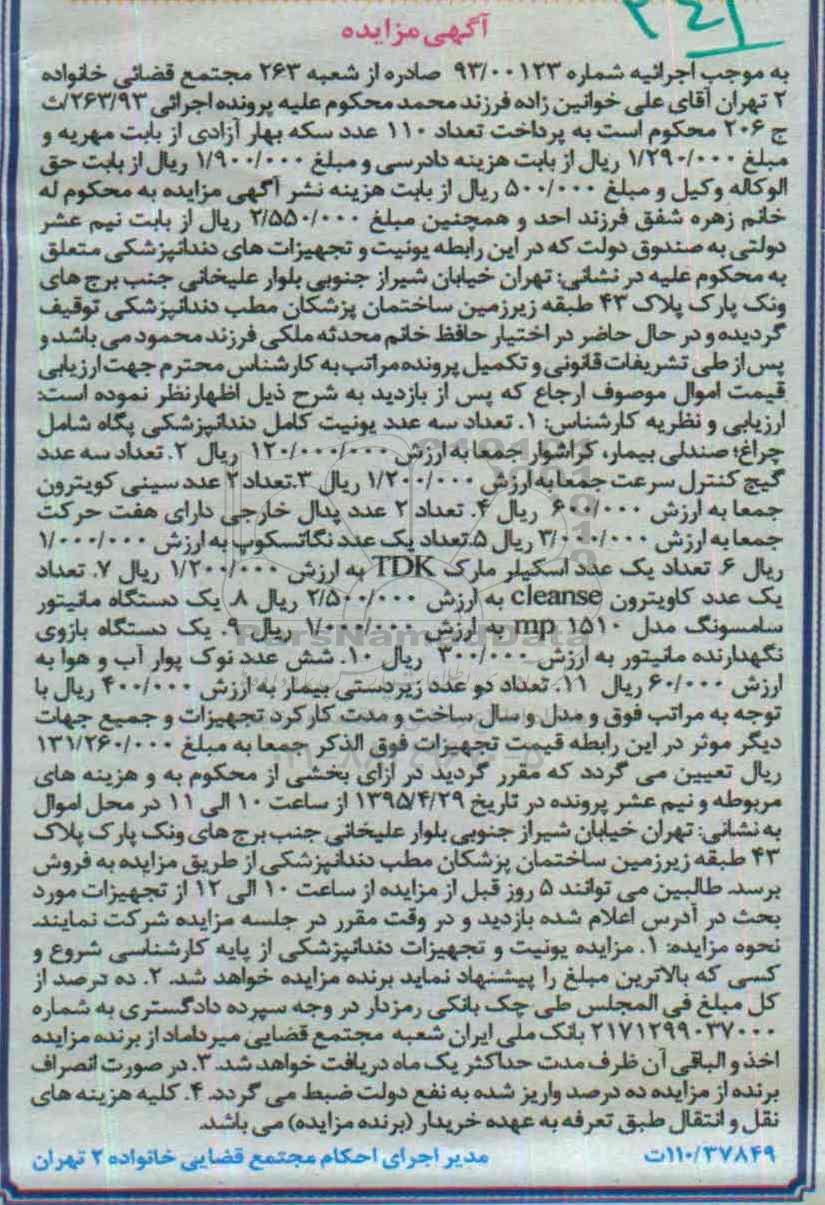 ۲۴۱
آگهی مزایده
به موجب اجرائیه شماره ۹۳/۰۰۱۲۳ صادره از شعبه ۲۶۳ مجتمع قضائی خانواده
۲ تهران آقای علی خوانین زاده فرزند محمد محکوم علیه پرونده اجرائی ۲۶۳/۹۳/ث
ج ۲۰۶ محکوم است به پرداخت تعداد ۱۱۰ عدد سکه بهار آزادی از بابت مهریه و
مبلغ ۱/۲۹۰/۰۰۰ ریال از بابت هزینه دادرسی و مبلغ ۱/۹۰۰/۰۰۰ ریال از بابت حق
الوکاله وکیل و مبلغ ۵۰۰/۰۰۰ ریال از بابت هزینه نشر آگهی مزایده به محکوم له
خانم زهره شفق فرزند احد و همچنین مبلغ ۲/۵۵۰/۰۰۰ ریال از بابت نیم عشر
دولتی به صندوق دولت که در این رابطه یونیت و تجهیزات های دندانپزشکی متعلق
به محکوم علیه در نشانی: تهران خیابان شیراز جنوبی بلوار علیخانی جنب برج های
ونک پارک پلاک ۴۳ طبقه زیرزمین ساختمان پزشکان مطب دندانپزشکی توقیف
گردیده و در حال حاضر در اختیار حافظ خانم محدثه ملکی فرزند محمود می باشد و
پس از طی تشریفات قانونی و تکمیل پرونده مراتب به کارشناس محترم جهت ارزیابی
قیمت اموال موصوف ارجاع که پس از بازدید به شرح ذیل اظهارنظر نموده است:
ارزیابی و نظریه کارشناس: ۱. تعداد سه عدد یونیت کامل دندانپزشکی پگاه شامل
چراغ؛ صندلی بیمار، کراشوار جمعا به ارزش ۱۲۰/۰۰۰/۰۰۰ ریال ۲. تعداد سه عدد
گیج کنترل سرعت جمعا به ارزش ۱/۲۰۰/۰۰۰ ریال ۳.تعداد ۲ عدد سینی کویترون
جمعا به ارزش ۶۰۰/۰۰۰ ریال ۴. تعداد ۲ عدد پدال خارجی دارای هفت حرکت
جمعا به ارزش ۳/۰۰۰/۰۰۰ ریال ۵.تعداد یک عدد نگاتسکوپ به ارزش ۱/۰۰۰/۰۰۰
ریال ۶. تعداد یک عدد اسکیلر مارک TDK به ارزش ۱/۲۰۰/۰۰۰ ریال ۷. تعداد
یک عدد کاویترون cleanse به ارزش ۲/۵۰۰/۰۰۰ ریال ۸. یک دستگاه مانیتور
سامسونگ مدل mp ۱۵۱۰ به ارزش ۱/۰۰۰/۰۰۰ ریال ۹. یک دستگاه بازوی
نگهدارنده مانیتور به ارزش ۳۰۰/۰۰۰ ریال ۱۰. شش عدد نوک پوار آب و هوا به
ارزش ۶۰/۰۰۰ ریال ۱۱. تعداد دو عدد زیردستی بیمار به ارزش ۴۰۰/۰۰۰ ریال با
توجه به مراتب فوق و مدل و سال ساخت و مدت کارکرد تجهیزات و جمیع جهات
دیگر موثر در این رابطه قیمت تجهیزات فوق الذکر جمعا به مبلغ ۱۳۱/۲۶۰/۰۰۰
ریال تعیین می گردد که مقرر گردید در ازای بخشی از محکوم به و هزینه های
مربوطه و نیم عشر پرونده در تاریخ ۱۳۹۵/۴/۲۹ از ساعت ۱۰ الی ۱۱ در محل اموال
به نشانی: تهران خیابان شیراز جنوبی بلوار علیخانی جنب برج های ونک پارک پلاک
۴۳ طبقه زیرزمین ساختمان پزشکان مطب دندانپزشکی از طریق مزایده به فروش
برسد. طالبین می توانند ۵ روز قبل از مزایده از ساعت ۱۰ الی ۱۲ از تجهیزات مورد
بحث در آدرس اعلام شده بازدید و در وقت مقرر در جلسه مزایده شرکت نمایند.
نحوه مزایده: ۱. مزایده یونیت و تجهیزات دندانپزشکی از پایه کارشناسی شروع و
کسی که بالاترین مبلغ را پیشنهاد نماید برنده مزایده خواهد شد. ۲. ده درصد از
کل مبلغ فی المجلس طی چک بانکی رمزدار در وجه سپرده دادگستری به شماره
۲۱۷۱۲۹۹۰۳۷۰۰۰ بانک ملی ایران شعبه مجتمع قضایی میرداماد از برنده مزایده
اخذ و الباقی آن ظرف مدت حداکثر یک ماه دریافت خواهد شد. ۳. در صورت انصراف
برنده از مزایده ده درصد واریز شده به نفع دولت ضبط می گردد. ۴. کلیه هزینه های
نقل و انتقال طبق تعرفه به عهده خریدار (برنده مزایده) می باشد.
۱۱۰/۳۷۸۴۹ت مدیر اجرای احکام مجتمع قضایی خانواده ۲ تهران
ParsNamadData